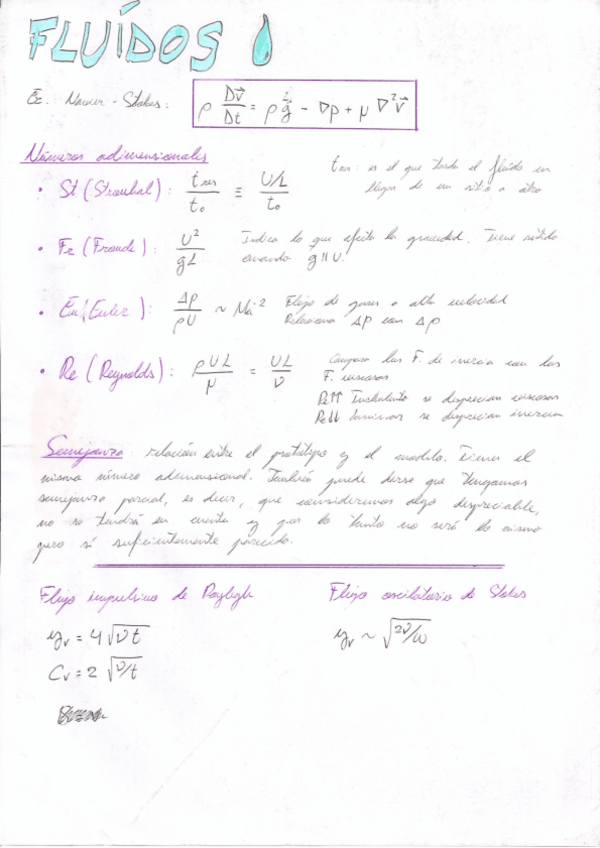 FLUÍDOS
Ec. Navier-Stokes: ρ Dv⃗/Dt = ρ g⃗ - ∇p + μ ∇²v⃗
Números adimensionales
• St (Strouhal): t_res/t₀ ≡ U/L / t₀
t_res: es el que tarda el fluído en
llegar de un sitio a otro
• Fr (Froude): U²/gL
Indica lo que afecta la gravedad. Tiene sentido
cuando g∥U.
• Eu (Euler): Δp/ρU ~ Ma⁻²
Flujo de gases a alta velocidad
Relaciona Δp con Δρ
• Re (Reynolds): ρUL/μ = UL/ν
Compara las F. de inercia con las
F. viscosas
Re↑↑ Turbulento se desprecian viscosas
Re↓↓ laminar se desprecian inercia
Semejanza: relación entre el prototipo y el modelo. Tienen el
mismo número adimensional. También puede darse que tengamos
semejanza parcial, es decir, que consideremos algo despreciable,
no se tendrá en cuenta y por lo tanto no será lo mismo
pero sí suficientemente parecido.
Flujo impulsivo de Rayligh
Flujo oscilatorio de Stokes
y_v = 4√(νt)
y_v ~ √(2ν/ω)
C_v = 2√(ν/t)